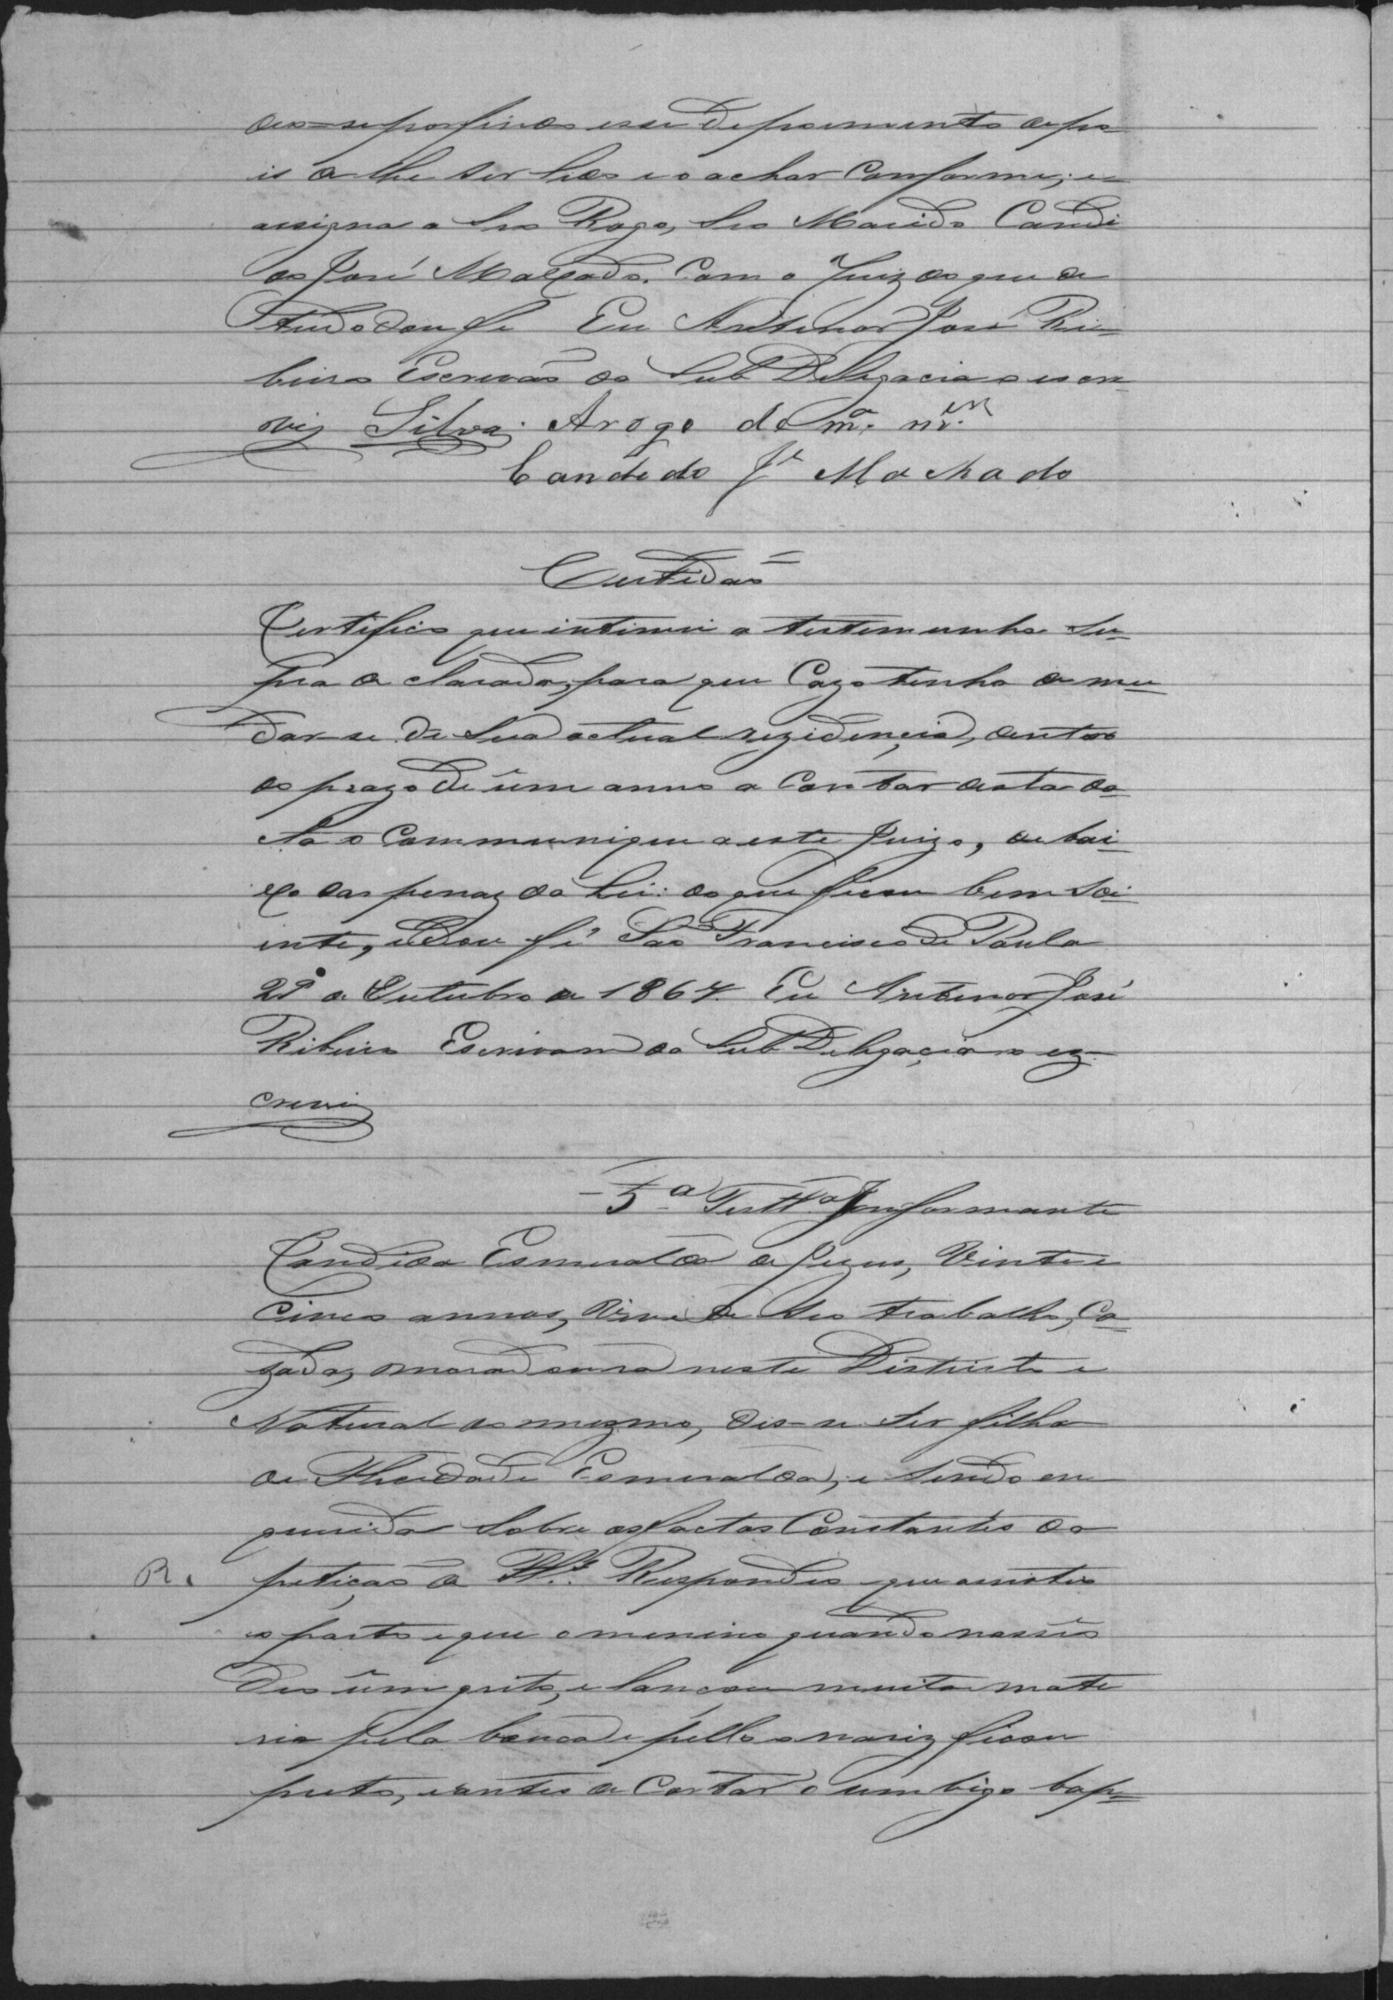 deo-se por findo esse depoimento depo
is de lhe ser lido e o achar conforme; e
assigna a seo Rogo, seo Marido Candi
do José Machado. Com o Juiz do que de
tudo dou fé Eu Antenor José Ri-
beiro Escrivão da Sub Delegacia o escre-
vi Silva. Arogo de m.ª m.er
Candido J.e Machado
Certidão
Certifico que intimei a testemunha su-
pra declarada, para que Cazo tenha de mu-
dar-se de sua actual rezidencia, dentro
do prazo de um anno a Contar desta da-
ta o Communique a este Juizo, debai-
xo das penas da Lei: do que ficou bem sci-
ente, e dou fé São Francisco de Paula
de Outubro de 1867. Eu Antenor José
Ribeiro Escrivam da Sub Delegacia o es-
crevi
5.ª Testt.ª Informante
Candida Esmeralda de Jezus, Vinte e
Cinco annos, Vive de seo trabalho, Ca-
zada, moradoura neste Districto e
Natural do mezmo, dis-se ser filha
de Esmeralda, e sendo en
querida sobre os factos Constantes da
R. petição de Respondeo que assistio
o parto e que o menino quando nasseo
deo um grito, e lançou muita mate
ria pela bouca e pello nariz ficou
preto, e antes de Cortar o umbigo bap-